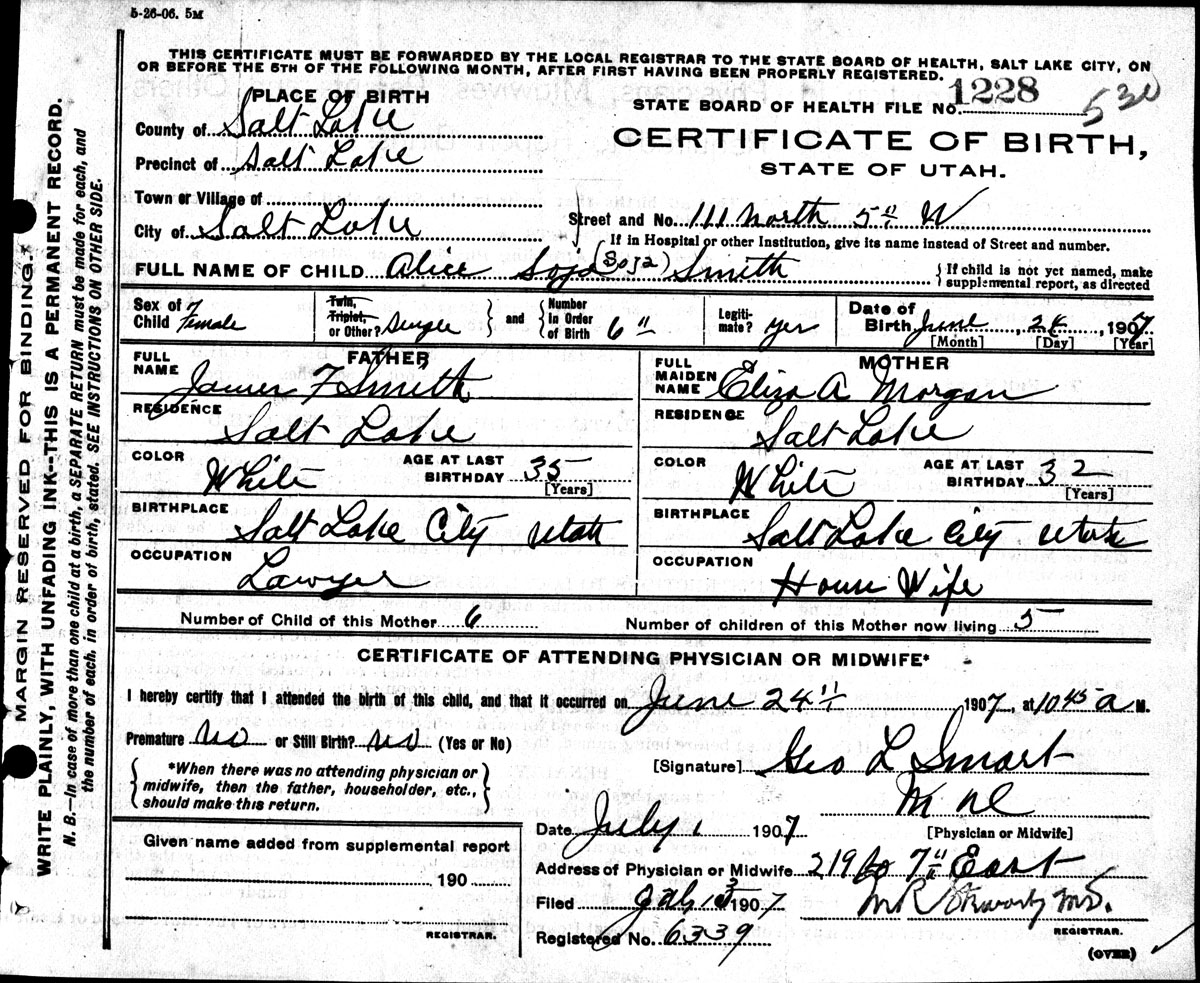 5-26-06. 5M
THIS CERTIFICATE MUST BE FORWARDED BY THE LOCAL REGISTRAR TO THE STATE BOARD OF HEALTH, SALT LAKE CITY, ON
OR BEFORE THE 5TH OF THE FOLLOWING MONTH, AFTER FIRST HAVING BEEN PROPERLY REGISTERED.
PLACE OF BIRTH
STATE BOARD OF HEALTH FILE No. 1228 530
County of Salt Lake
CERTIFICATE OF BIRTH,
Precinct of Salt Lake
STATE OF UTAH.
Town or Village of
City of Salt Lake Street and No. 111 North 5" W
If in Hospital or other Institution, give its name instead of Street and number.
FULL NAME OF CHILD Alice Soja (Soja) Smith
If child is not yet named, make
supplemental report, as directed
Sex of Child Female
Twin,
Triplet,
or Other? Single
and
Number
In Order
of Birth 6"
Legiti-
mate? yes
Date of
Birth June, 24, 1907
[Month] [Day] [Year]
FATHER
FULL
NAME James F Smith
MOTHER
FULL
MAIDEN
NAME Eliza A Morgan
RESIDENCE
Salt Lake
RESIDENCE
Salt Lake
COLOR White
AGE AT LAST
BIRTHDAY 35
[Years]
COLOR White
AGE AT LAST
BIRTHDAY 32
[Years]
BIRTHPLACE
Salt Lake City Utah
BIRTHPLACE
Salt Lake City Utah
OCCUPATION
Lawyer
OCCUPATION
House Wife
Number of Child of this Mother 6 Number of children of this Mother now living 5
CERTIFICATE OF ATTENDING PHYSICIAN OR MIDWIFE*
I hereby certify that I attended the birth of this child, and that it occurred on June 24" 1907, at 10 45 a M.
Premature no or Still Birth? no (Yes or No)
*When there was no attending physician or
midwife, then the father, householder, etc.,
should make this return.
[Signature] Geo L Smart
M D
[Physician or Midwife]
Date July 1 1907
Given name added from supplemental report
190
REGISTRAR.
Address of Physician or Midwife 219 So 7" East
Filed 1907
REGISTRAR.
Registered No. 6339
(OVER)
MARGIN RESERVED FOR BINDING.
WRITE PLAINLY, WITH UNFADING INK--THIS IS A PERMANENT RECORD.
N. B.—In case of more than one child at a birth, a SEPARATE RETURN must be made for each, and
the number of each, in order of birth, stated. SEE INSTRUCTIONS ON OTHER SIDE.